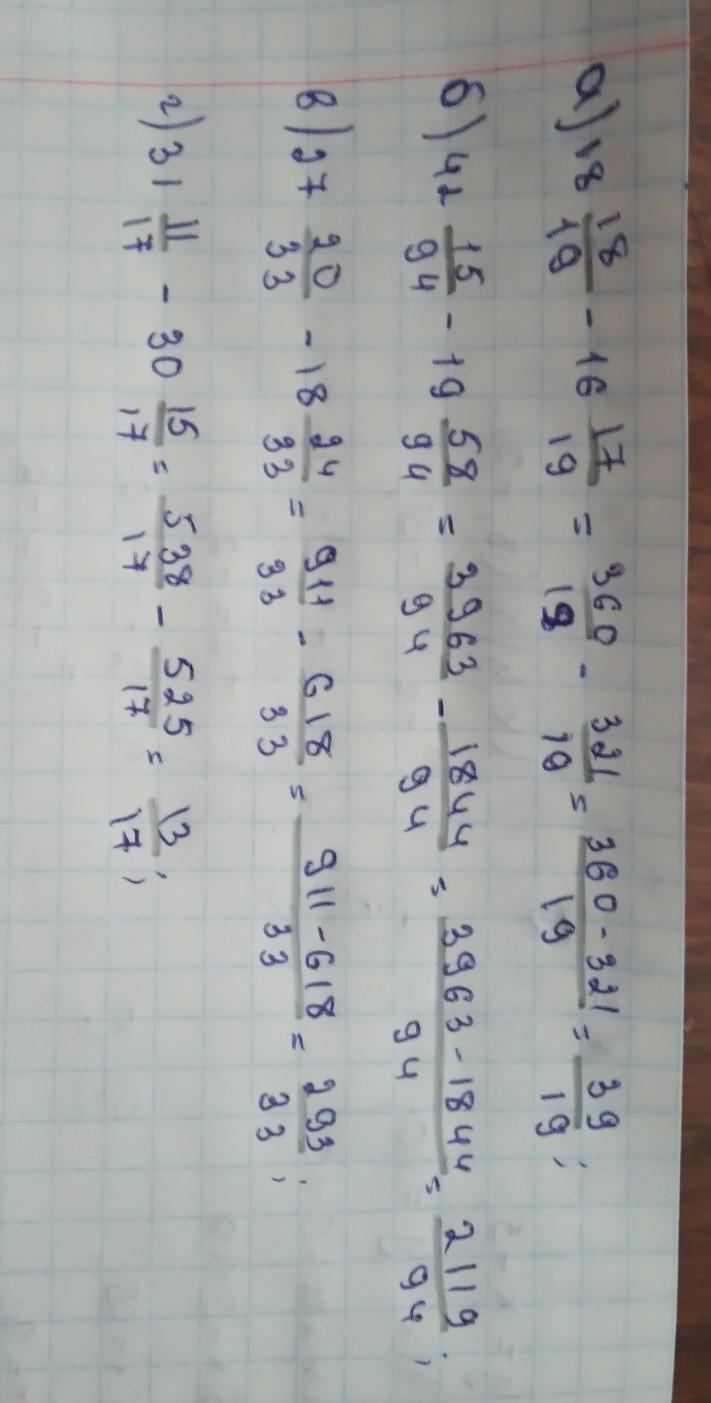 а) 18 18/19 - 16 17/19 = 360/19 - 321/19 = 360-321/19 = 39/19;
б) 42 15/94 - 19 58/94 = 3963/94 - 1844/94 = 3963-1844/94 = 2119/94;
в) 27 20/33 - 18 24/33 = 911/33 - 618/33 = 911-618/33 = 293/33;
г) 31 11/17 - 30 15/17 = 538/17 - 525/17 = 13/17;